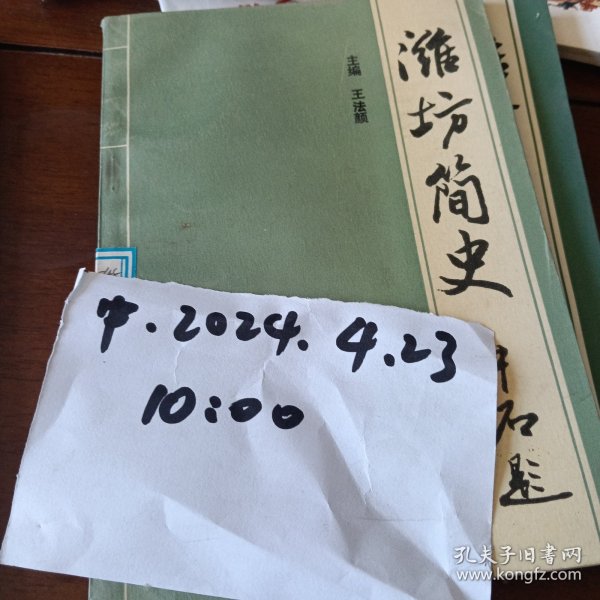 潍坊简史
石题
主编 王法颜
中.2024.4.23
10:00
孔夫子旧书网
www.kongfz.com